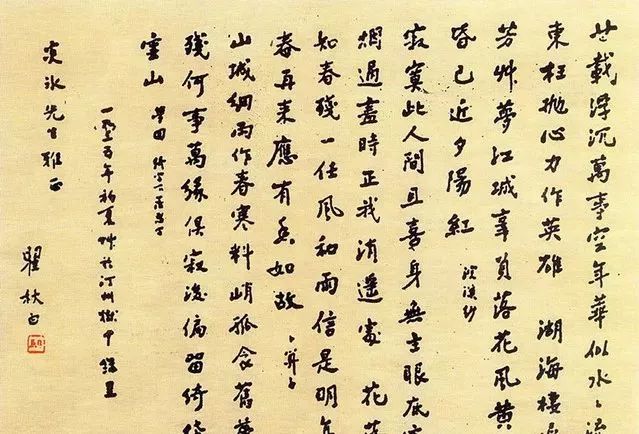 廿載浮沉萬事空年華似水、流
東枉抛心力作英雄 湖海棲
芳艸夢江城辜負落花風黃
昏已近夕陽紅 浣溪紗
寂寞此人間且喜身無主眼底
烟過盡時正我逍遙處 花
知春殘一任風和雨信是明年
春再來應有香如故 卜算子
山城細雨作春寒料峭孤衾舊夢
殘何事萬緣俱寂後偏留綺
靈山 夢回
一九三五年初夏艸於汀州獄中 錄呈
先生雅正
瞿秋白